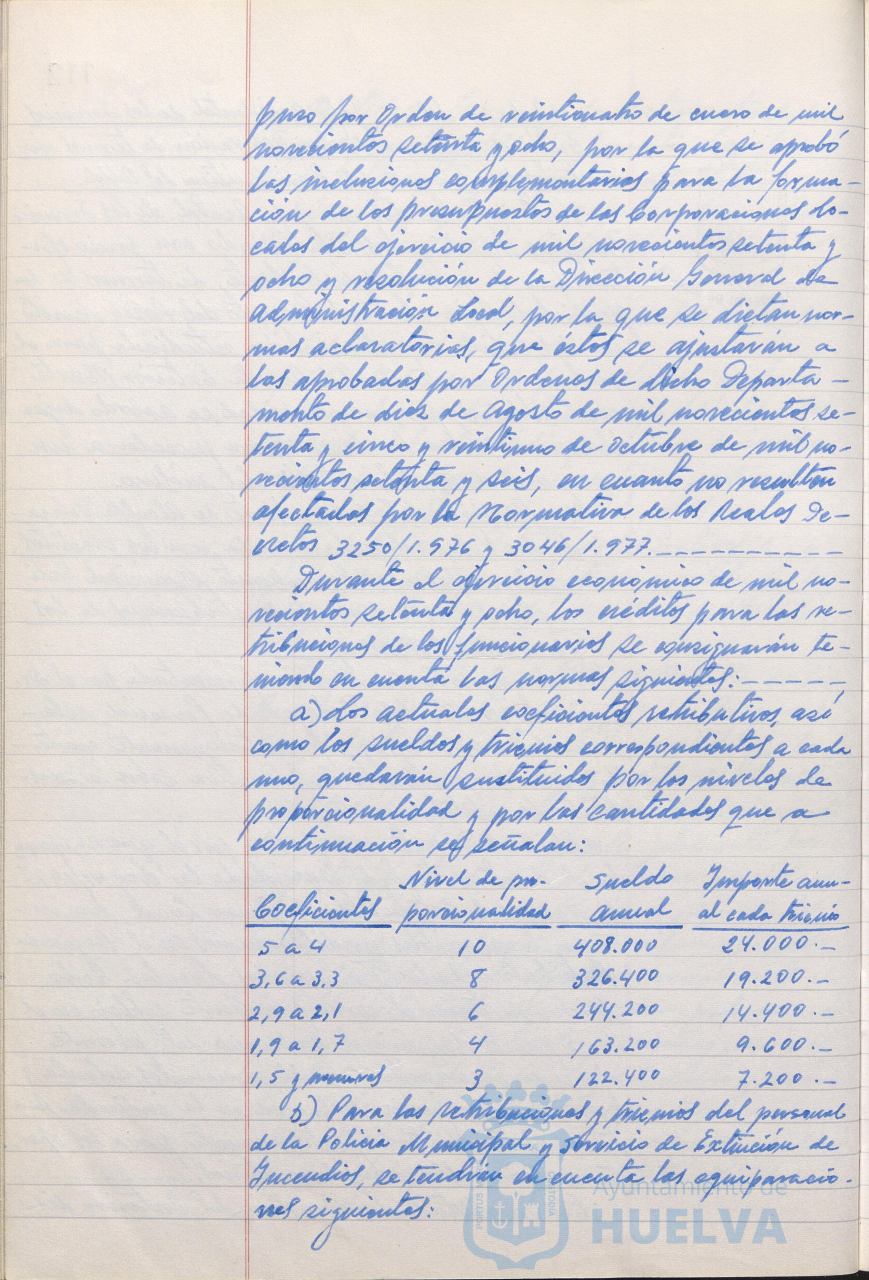 puso por Orden de veinticuatro de enero de mil
novecientos setenta y ocho, por la que se aprobó
las inclusiones complementarias para la forma-
ción de los presupuestos de las Corporaciones Lo-
cales del ejercicio de mil novecientos setenta y
ocho y resolución de la Dirección General de
Administración Local, por la que se dictan nor-
mas aclaratorias, que éstos se ajustarán a
las aprobadas por Ordenes de dicho Departa-
mento de diez de Agosto de mil novecientos se-
tenta y cinco y veintiuno de octubre de mil no-
vecientos setenta y seis, en cuanto no resulten
afectados por la Normativa de los Reales De-
cretos 3250/1.976 y 3046/1.977.----------
Durante el ejercicio económico de mil no-
vecientos setenta y ocho, los créditos para las re-
tribuciones de los funcionarios se consignarán te-
niendo en cuenta las normas siguientes:-----
a) Los actuales coeficientes retributivos, así
como los sueldos y trienios correspondientes a cada
uno, quedarán sustituidos por los niveles de
proporcionalidad y por las cantidades que a
continuación se señalan:
Nivel de pro- Sueldo Importe anu-
Coeficientes porcionalidad anual al cada trienio
5 a 4 10 408.000 24.000.-
3,6 a 3,3 8 326.400 19.200.-
2,9 a 2,1 6 244.200 14.400.-
1,9 a 1,7 4 163.200 9.600.-
1,5 y menores 3 122.400 7.200.-
b) Para las retribuciones y trienios del personal
de la Policia Municipal y Servicio de Extinción de
Incendios, se tendrán en cuenta las equiparacio-
nes siguientes:
Ayuntamiento de
HUELVA